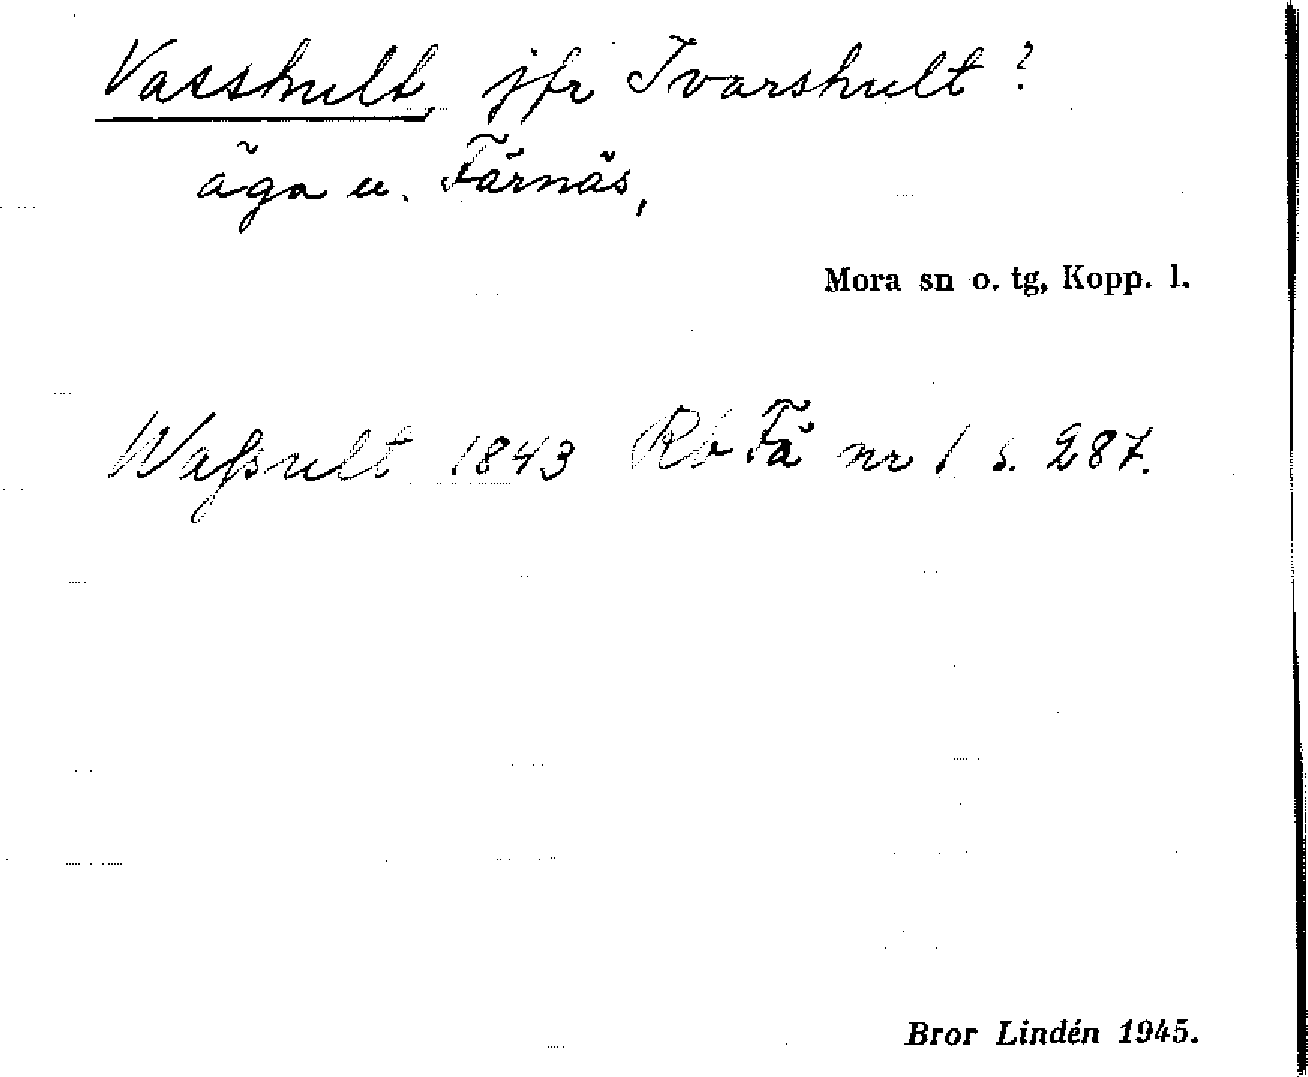 Vasshult, jfr Ivarshult?
äga u. Färnäs,
Mora sn o. tg, Kopp. l.
Waßult 1843 Rb Fä nr 1 s. 287.
Bror Lindén 1945.